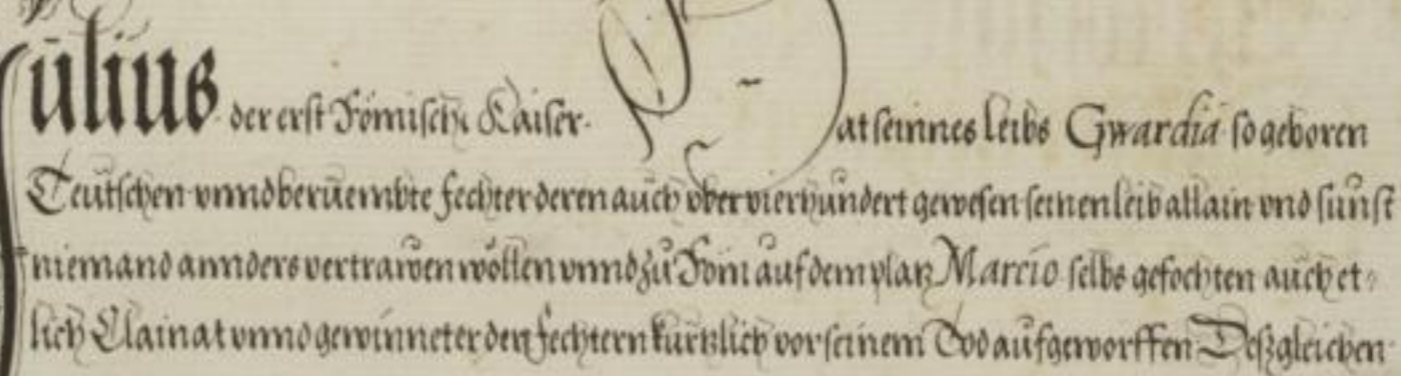 Julius der erst Römische Kaiser. Hat seinnes leibs Gwardia so geboren
Teütschen vnnd berüembte fechter deren auch vber vierhundert gewesen seinen leib allain vnd sunst
niemand annders vertrawen wöllen vnnd zu Rom auf dem platz Marcio selbs gefochten auch et⸗
lich Clainat vnnd gewinneter den fechtern kurtzlich vor seinem Tod aufgeworffen Deßgleichen